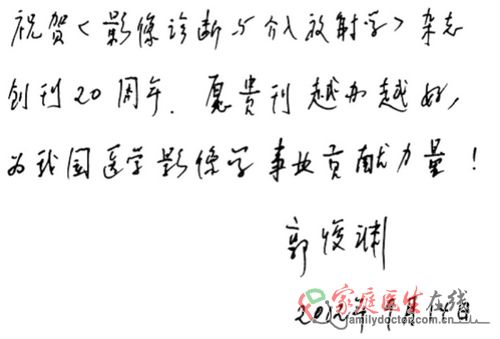 祝贺《影像诊断与介入放射学》杂志
创刊20周年.愿贵刊越办越好,
为我国医学影像学事业贡献力量!
郭俊渊
家庭医生在线
familydoctor.com.cn
2012年 月14日